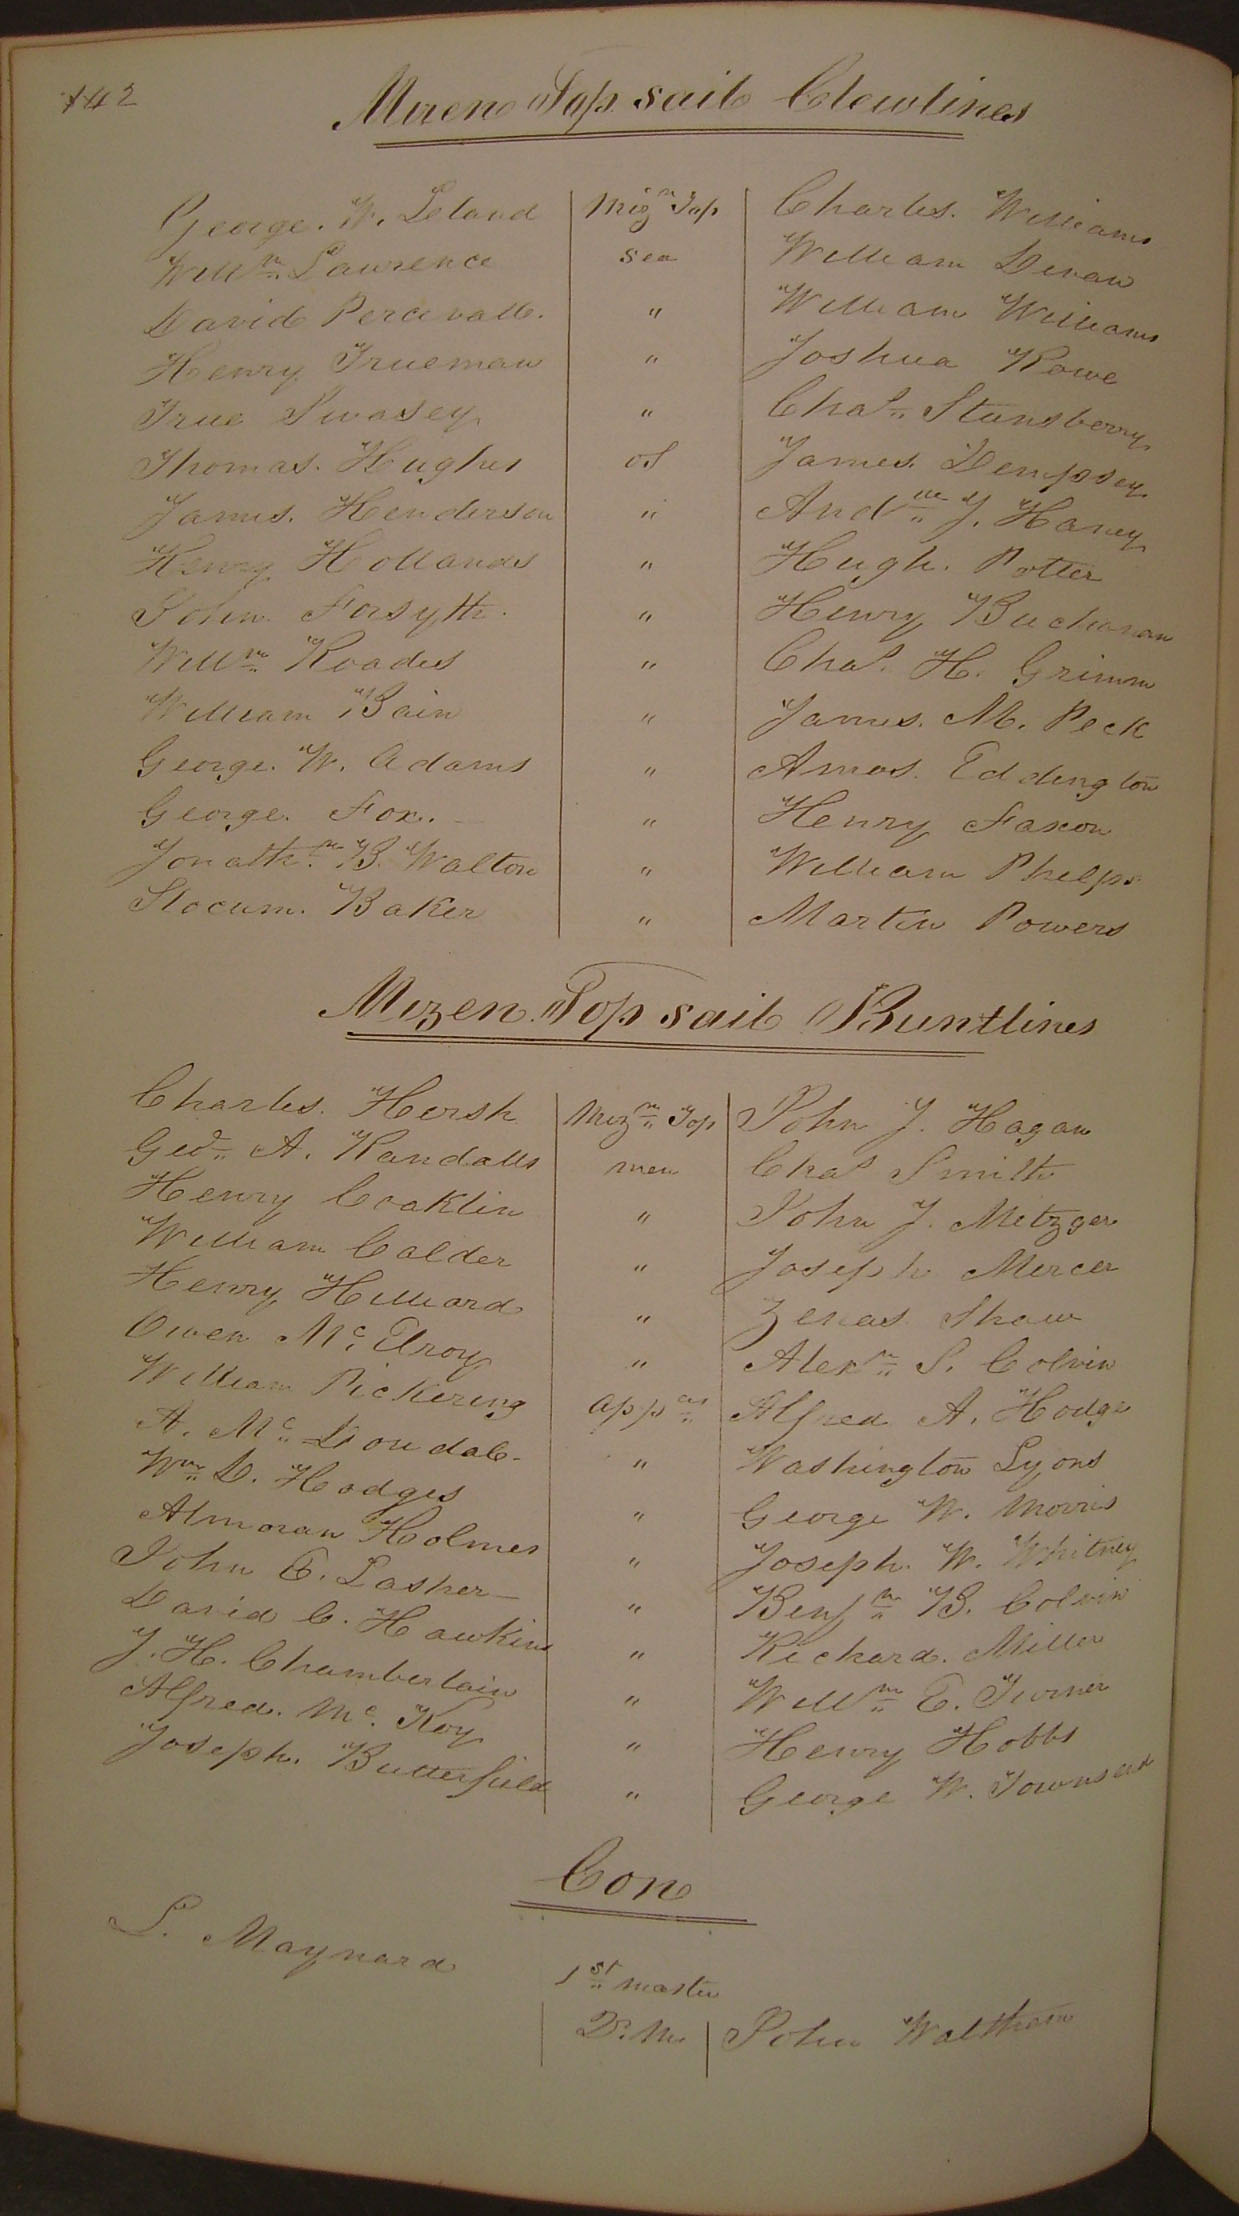 142
Mizen Top sail Clewlines
George. W. Leland Miz n Top Charles. Williams
Will m Lawrence sea William Devan
David Percivall. " William Williams
Henry Trueman " Joshua Rowe
True Swasey " Cha s Stansberry
Thomas. Hughes os James. Dempsey
James. Henderson " And w J. Haney
Henry Hollands " Hugh. Potter
John Forsyth. " Henry Buchanan
Will m Roades " Cha s. H. Grimm
William Bain " James. M. Peck
George. W. Adams " Amos. Eddington
George. Fox. " Henry Faxon
Jonath n B. Walton " William Phelps
Slocum. Baker " Martin Powers
Mizen Top sail Buntlines
Charles. Hersh Miz n Top John J. Hagan
Geo A. Randalls men Cha s Smith
Henry Coaklin " John J. Metzger
William Calder " Joseph Mercer
Henry Hilliard " Zenas Shaw
Owen Mc Elroy " Alex r S. Colvin
William Pickering app es Alfred A. Hodge
A. Mc Doudal- " Washington Lyons
Wm D. Hodges " George W. Morris
Almoran Holmes " Joseph. W. Whitney
John E. Lasher- " Benj n B. Colvin
David C. Hawkins " Richard. Miller
J. H. Chamberlain " Will m E. Turner
Alfred. Mc. Koy " Henry Hobbs
Joseph. Butterfield " George W. Townsend
Con
L. Maynard 1 st master
2 M John Waltham